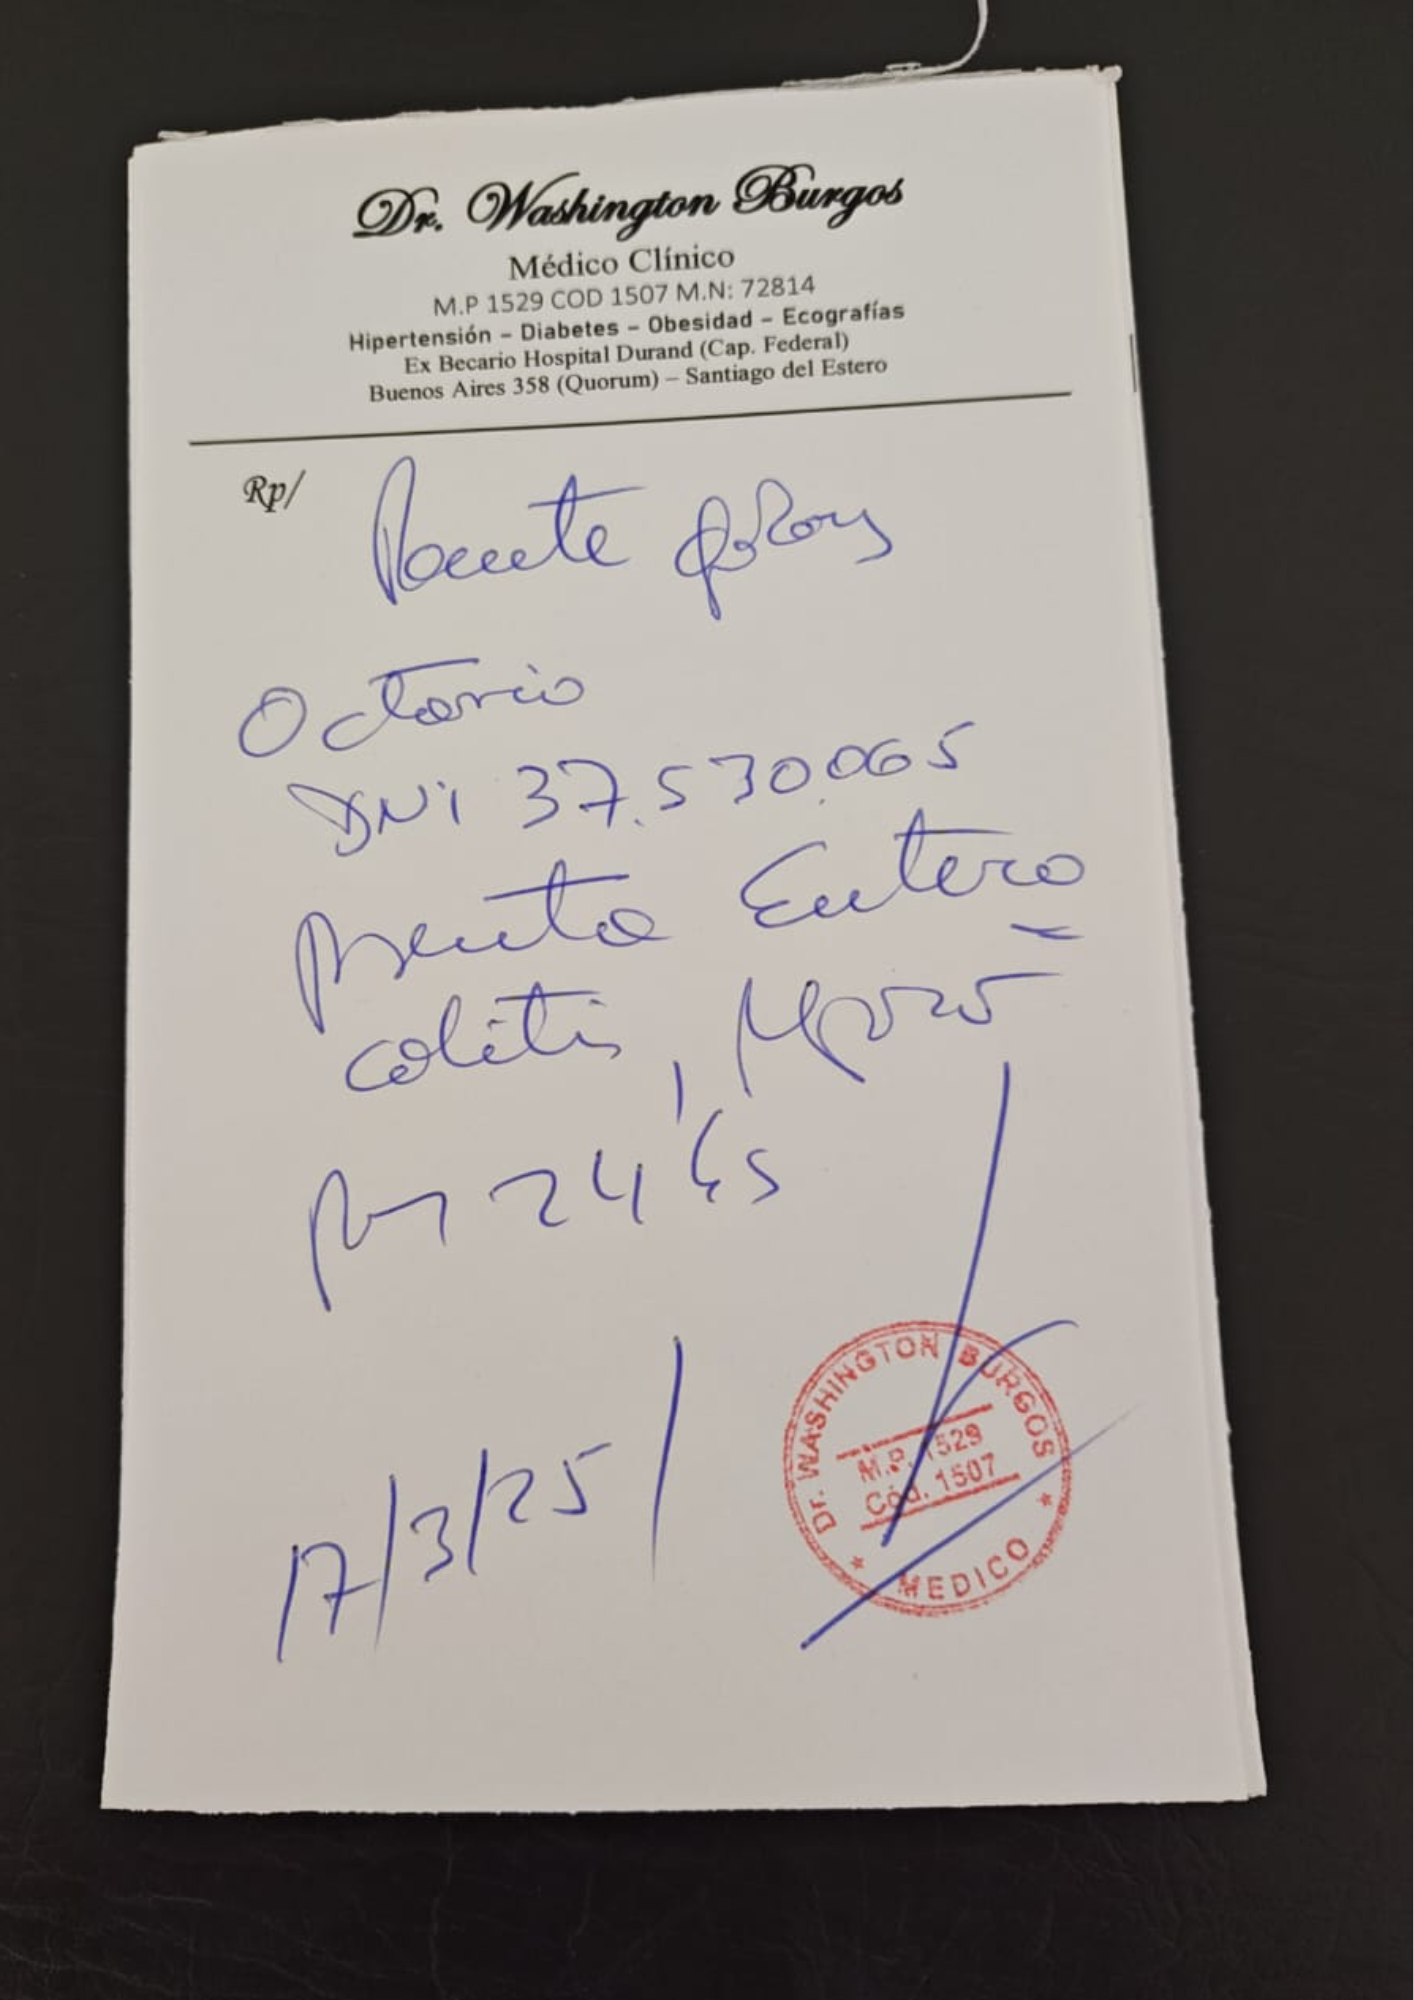 Dr. Washington Burgos
Médico Clínico
M.P 1529 COD 1507 M.N: 72814
Hipertensión – Diabetes – Obesidad – Ecografías
Ex Becario Hospital Durand (Cap. Federal)
Buenos Aires 358 (Quorum) – Santiago del Estero
Rp/
Octavio
DNI 37.530.065
Presenta Entero
colitis, Reposo
por 24 hs
17/3/25
Dr. WASHINGTON BURGOS
M.P. 1529
Cód. 1507
* MEDICO *